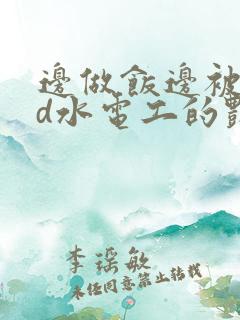 邊做飯邊被
d水電工的
李瑶敏
未经同意禁止转载